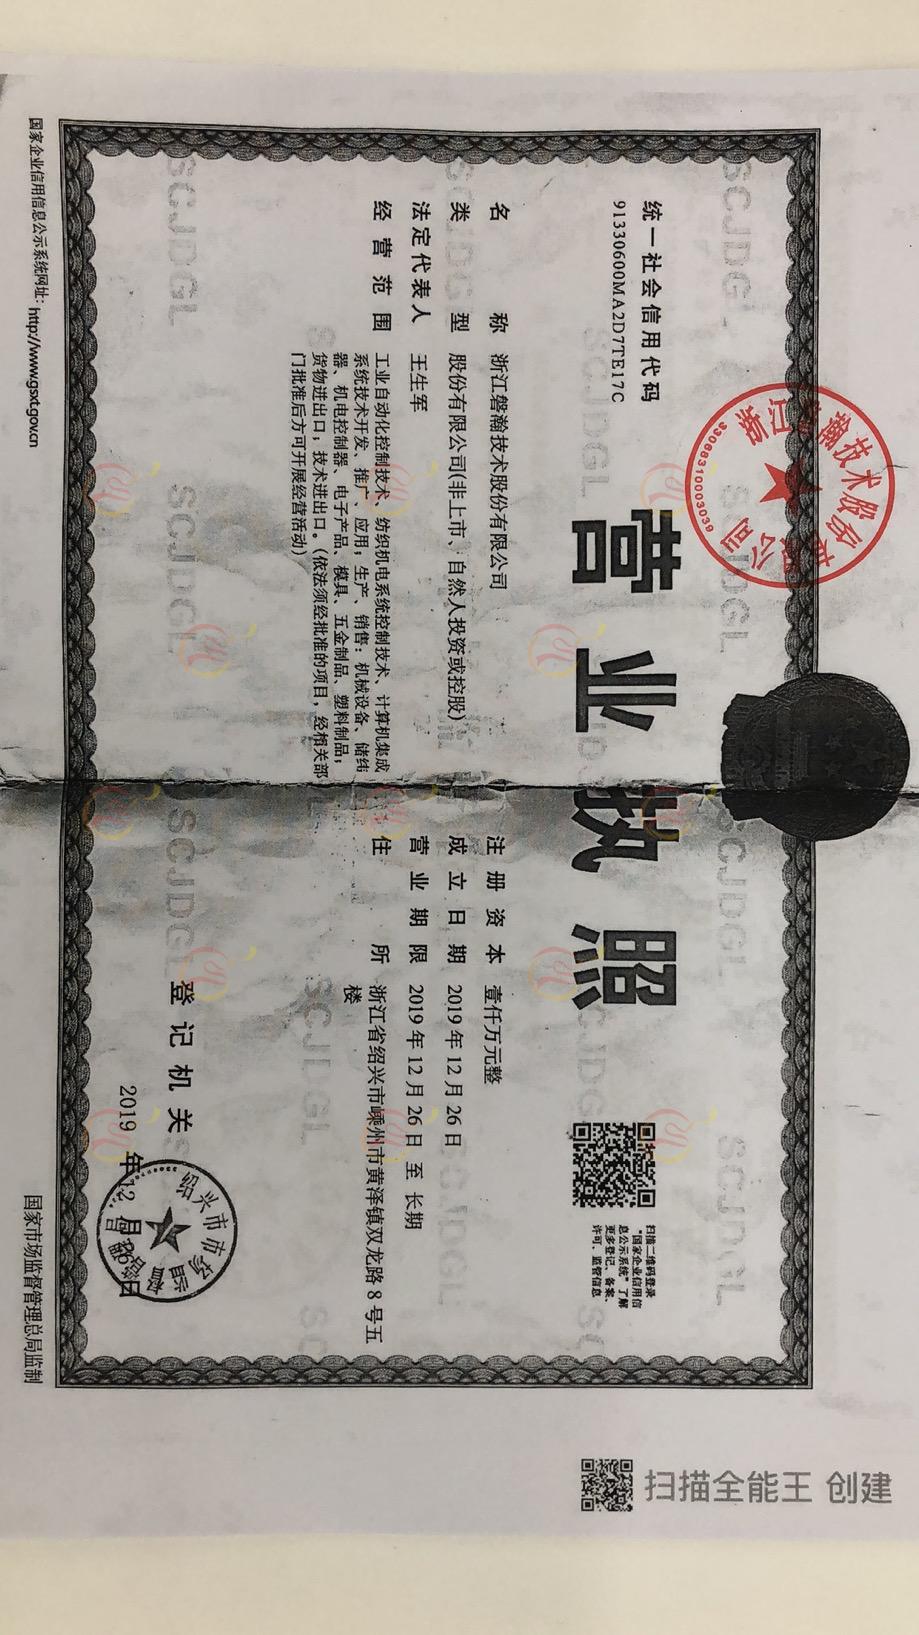 统一社会信用代码
91330600MA2D7TE17C
营业执照
扫描二维码登录
“国家企业信用信
息公示系统”了解
更多登记、备案、
许可、监管信息
名称 浙江磐瀚技术股份有限公司
类型 股份有限公司(非上市、自然人投资或控股)
法定代表人 王生军
经营范围 工业自动化控制技术、纺织机电系统控制技术、计算机集成
系统技术开发、推广、应用；生产、销售：机械设备、储纬
器、机电控制器、电子产品、模具、五金制品、塑料制品；
货物进出口，技术进出口。（依法须经批准的项目，经相关部
门批准后方可开展经营活动）
注册资本 壹仟万元整
成立日期 2019年12月26日
营业期限 2019年12月26日至长期
住所 浙江省绍兴市嵊州市黄泽镇双龙路8号五
楼
登记机关
2019年12月26日
国家企业信用信息公示系统网址: http://www.gsxt.gov.cn
国家市场监督管理总局监制
3306831000303​9
SCJDGL
扫描全能王 创建